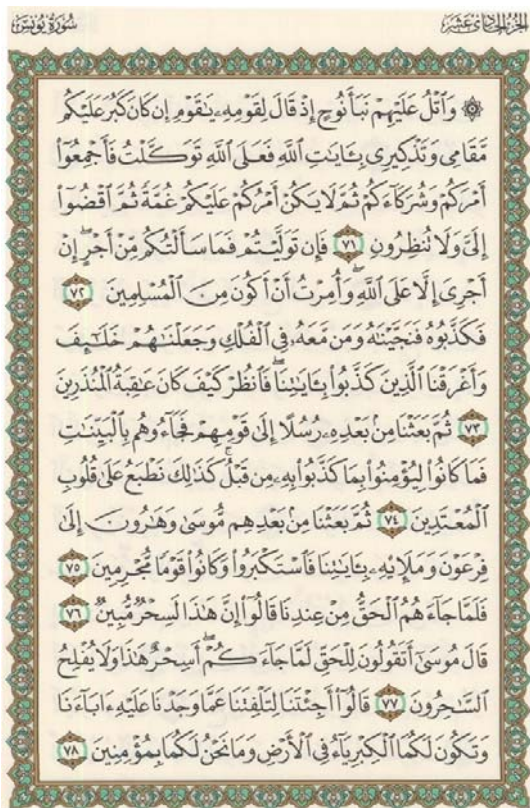 الجزء الحادي عشر
سورة يونس
۞ وَٱتْلُ عَلَيْهِمْ نَبَأَ نُوحٍ إِذْ قَالَ لِقَوْمِهِۦ يَٰقَوْمِ إِن كَانَ كَبُرَ عَلَيْكُم
مَّقَامِى وَتَذْكِيرِى بِـَٔايَٰتِ ٱللَّهِ فَعَلَى ٱللَّهِ تَوَكَّلْتُ فَأَجْمِعُوٓا۟
أَمْرَكُمْ وَشُرَكَآءَكُمْ ثُمَّ لَا يَكُنْ أَمْرُكُمْ عَلَيْكُمْ غُمَّةً ثُمَّ ٱقْضُوٓا۟
إِلَىَّ وَلَا تُنظِرُونِ ٧١ فَإِن تَوَلَّيْتُمْ فَمَا سَأَلْتُكُم مِّنْ أَجْرٍ ۖ إِنْ
أَجْرِىَ إِلَّا عَلَى ٱللَّهِ ۖ وَأُمِرْتُ أَنْ أَكُونَ مِنَ ٱلْمُسْلِمِينَ ٧٢
فَكَذَّبُوهُ فَنَجَّيْنَٰهُ وَمَن مَّعَهُۥ فِى ٱلْفُلْكِ وَجَعَلْنَٰهُمْ خَلَٰٓئِفَ
وَأَغْرَقْنَا ٱلَّذِينَ كَذَّبُوا۟ بِـَٔايَٰتِنَا ۖ فَٱنظُرْ كَيْفَ كَانَ عَٰقِبَةُ ٱلْمُنذَرِينَ
٧٣ ثُمَّ بَعَثْنَا مِنۢ بَعْدِهِۦ رُسُلًا إِلَىٰ قَوْمِهِمْ فَجَآءُوهُم بِٱلْبَيِّنَٰتِ
فَمَا كَانُوا۟ لِيُؤْمِنُوا۟ بِمَا كَذَّبُوا۟ بِهِۦ مِن قَبْلُ ۚ كَذَٰلِكَ نَطْبَعُ عَلَىٰ قُلُوبِ
ٱلْمُعْتَدِينَ ٧٤ ثُمَّ بَعَثْنَا مِنۢ بَعْدِهِم مُّوسَىٰ وَهَٰرُونَ إِلَىٰ
فِرْعَوْنَ وَمَلَإِي۟هِۦ بِـَٔايَٰتِنَا فَٱسْتَكْبَرُوا۟ وَكَانُوا۟ قَوْمًا مُّجْرِمِينَ ٧٥
فَلَمَّا جَآءَهُمُ ٱلْحَقُّ مِنْ عِندِنَا قَالُوٓا۟ إِنَّ هَٰذَا لَسِحْرٌ مُّبِينٌ ٧٦
قَالَ مُوسَىٰٓ أَتَقُولُونَ لِلْحَقِّ لَمَّا جَآءَكُمْ ۖ أَسِحْرٌ هَٰذَا وَلَا يُفْلِحُ
ٱلسَّٰحِرُونَ ٧٧ قَالُوٓا۟ أَجِئْتَنَا لِتَلْفِتَنَا عَمَّا وَجَدْنَا عَلَيْهِ ءَابَآءَنَا
وَتَكُونَ لَكُمَا ٱلْكِبْرِيَآءُ فِى ٱلْأَرْضِ وَمَا نَحْنُ لَكُمَا بِمُؤْمِنِينَ ٧٨